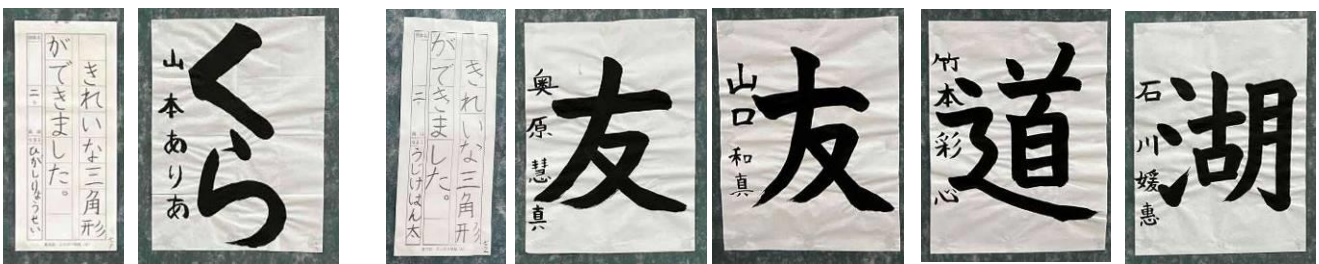 きれいな三角形
ができました。
二年
ひがしりょうせい
くら
山本ありあ
きれいな三角形
ができました。
二年
うしけばん太
友
奥原慧真
友
山口和真
道
竹本彩心
湖
石川媛恵